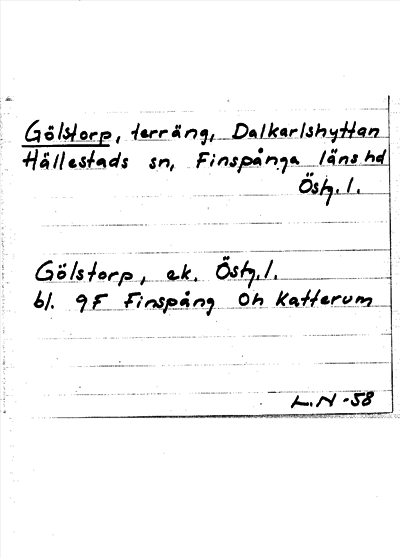 Gölstorp, terräng, Dalkarlshyttan
Hällestads sn, Finspånga läns hd
Östg. l.
Gölstorp, ek. Östg. l.
bl. 9F Finspång Oh Katterum
L.N -58